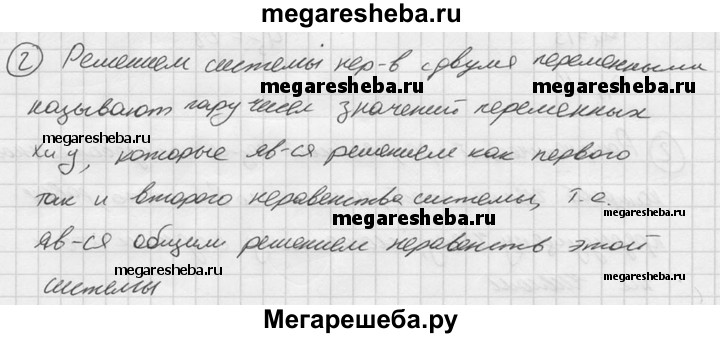 megaresheba.ru
② Решением системы нер-в с двумя переменными
megaresheba.ru megaresheba.ru
называют пару чисел значений переменных
megaresheba.ru megaresheba.ru
x и y, которые яв-ся решением как первого
так и второго неравенства системы, т.е.
megaresheba.ru
яв-ся общим решением неравенств этой
megaresheba.ru megaresheba.ru
системы
Мегарешеба.ру